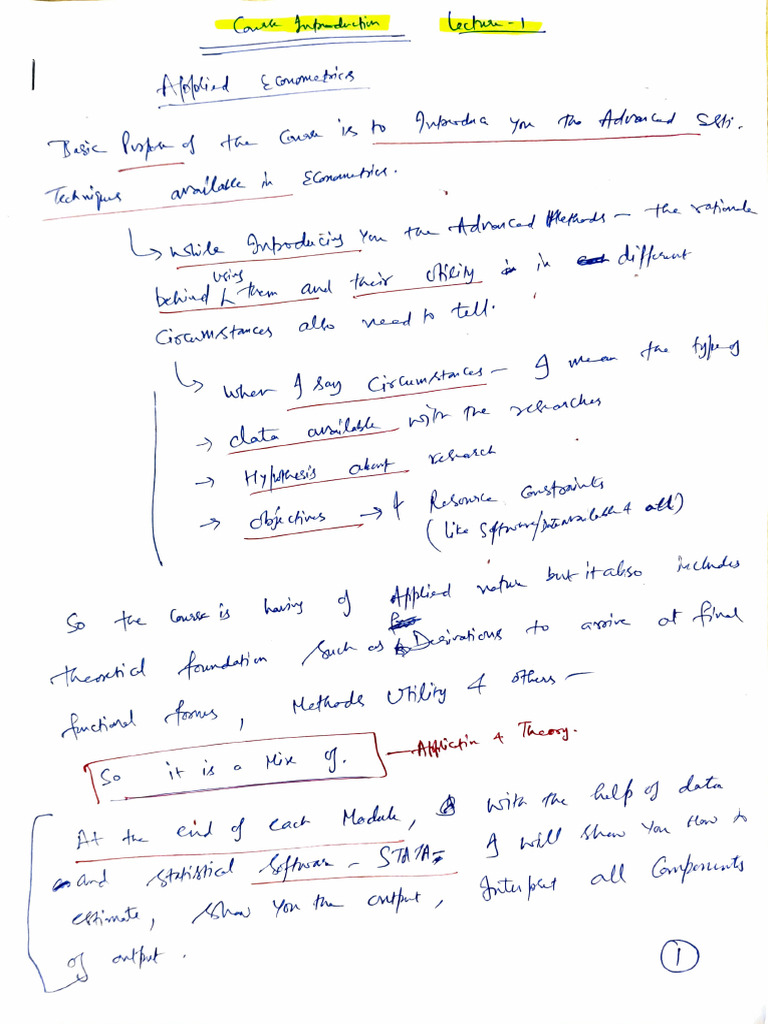 Course Introduction Lecture - 1
Applied Econometrics
Basic Purpose of the Course is to Introduce you the Advanced
Techniques available in Econometrics.
↳ While Introducing you the Advanced Methods – the rationale
behind using them and their Utility in different
Circumstances also need to tell.
↳ When I say Circumstances – I mean the type of
→ data available with the researches
→ Hypothesis about research
→ objectives → & Resource constraints
(like Software/ & all)
So the Course is having of Applied nature but it also includes
theoretical foundation such as Derivations to arrive at final
functional forms, Methods Utility & others –
So it is a Mix of. — Application & Theory.
At the end of each Module, with the help of data
and statistical Software – STATA – I will show you How to
estimate, show you the output, Interpret all Components
of output.
1